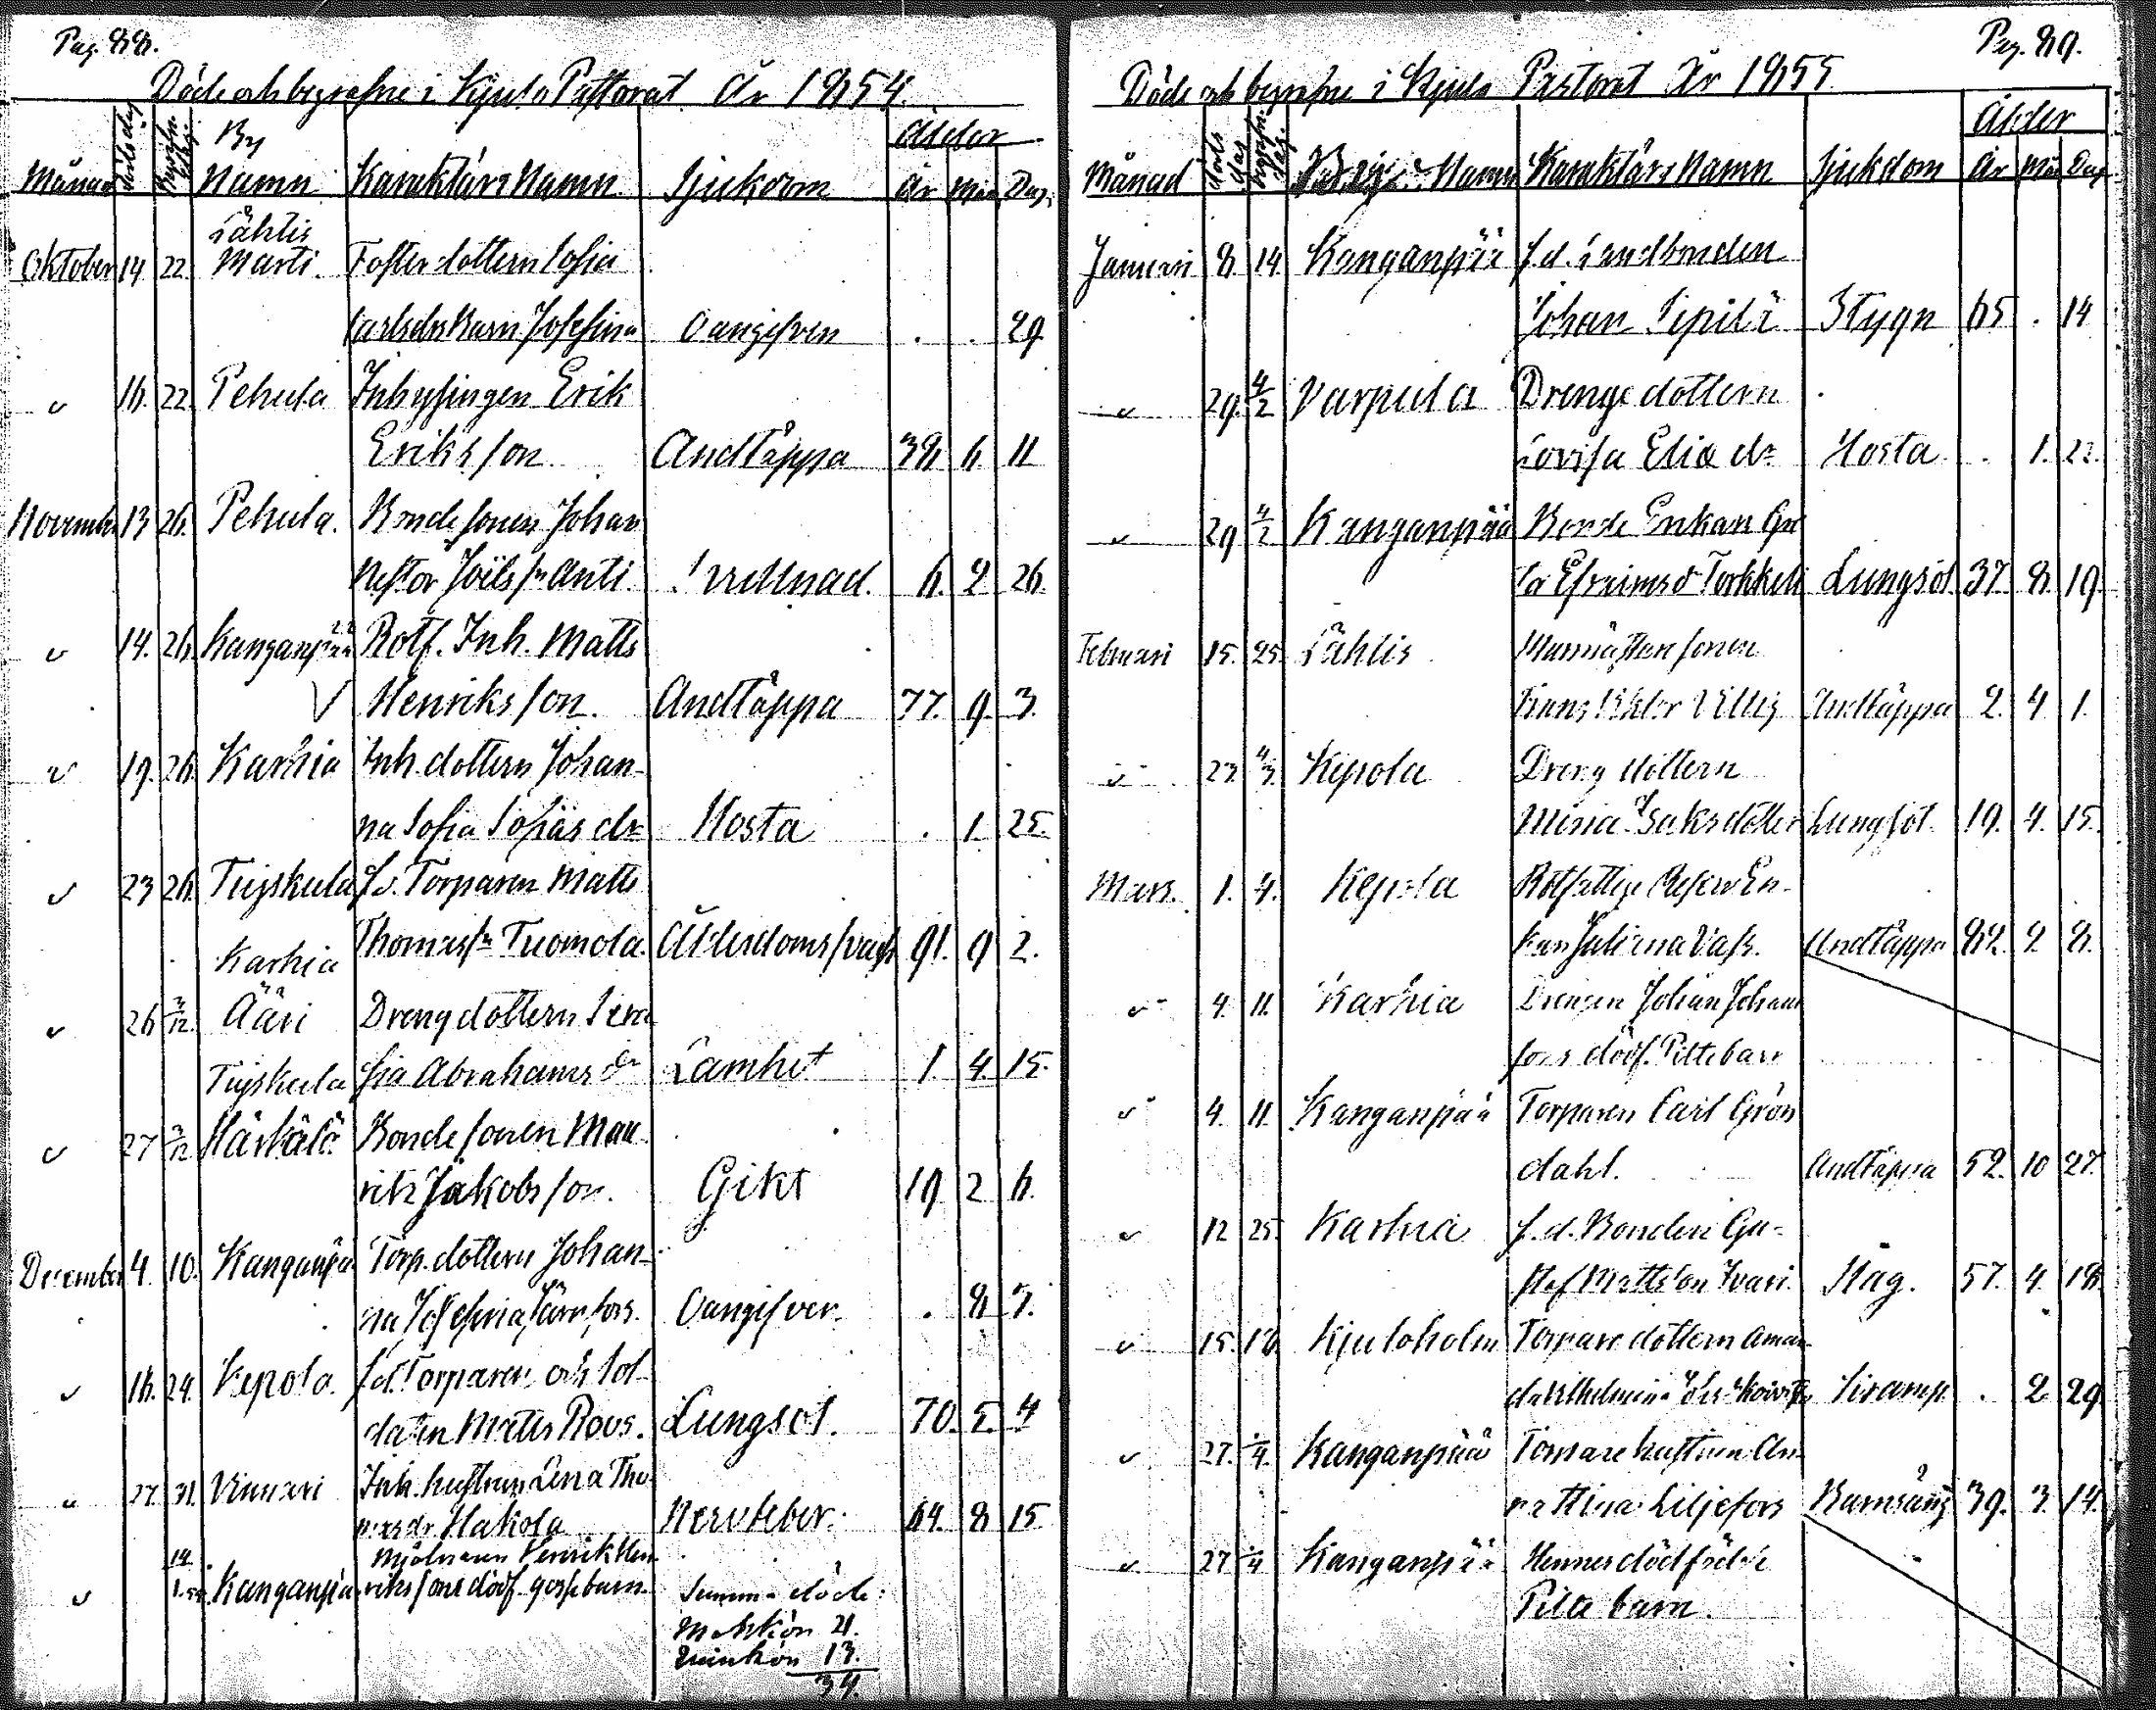 Pag. 88.
Döde och begrafne i Kjulo Pastorat År 1854.
Månad Döds dag Begrafn. dag By Namn Karaktärs Namn Sjukdom Ålder År Mån Dag.
Lähtis
Oktober 14 22. Marti. Fosterdottern Sofia
Carlsdrs Barn Josefina Oangifven . . 29
v 16. 22 Pehula Inhysingen Erik
Eriksson Andtäppa 38 6 11
November 13 26. Pehula. Bondesonen Johan
Nestor Joëlssn Anti. 6. 2 26.
v 14. 26. Kanganpää Rotf. Inh. Matts
V Henriksson. Andtäppa 77. 9. 3.
v 19. 26. Karhia Inh. dottern Johan-
na Sofia dr Hosta . 1 25.
v 23 26. Tujskula f.d. Torparen Matts
Karhia Thomassn Tuomola. Ålderdomssvagh 91. 9 2.
v 26 3/12. Ääri Drengdottern Sera
Tujskula fia Abrahams dr Lamhet 1. 4. 15.
v 27 3/12 Härkälä Bondesonen Mau
ritz Jakobsson. Gikt 19 2 6.
December 4. 10. Kanganpä Torp. dottern Johan-
na Josefina Oangifven. . 8 3.
v 16. 24. Kepola. f.d. Torparen och Sol-
daten Matts Roos. Lungsot. 70. 5. 4
v 27. 31. Vinnari Inh. hustrun Lena Tho-
masdr Hakola Nervfeber. 64. 8 15
14
v Kanganpää Mjölnaren Henrik Hen-
rikssons dödf. gossebarn Summa döde:
Mankön 21.
Qvinkön 13.
34.
Pag. 89.
Döde och begrafne i Kjulo Pastorat År 1855
Månad döds dag begrafn. dag. Namn Karaktärs Namn Sjukdom Ålder År Mån Dag
Januari 8. 14. Kanganpää f.d. Landbonden
Johan Sepilä Stygn 65 . 14
v 29. 4/2 Varpula Drengedottern
Lovisa Elia dr Hosta . 1. 22.
v 29 4/2 Kanganpää Bonde Enkan Gre
ta Efraims dr Torkkeli Lungsot. 37. 8. 19.
Februari 15. 25. Lähtis
Frans Viktor Andtäppa 2. 4 1.
v 23. 4/3. Kepola Dreng dottern
Miina Isaksdotter Lungsot. 19. 4. 15.
Mars. 1. 4. Kepola Rotfattige En-
kan Juliana Vass. Andtäppa 82. 2 8.
v 4. 11. Karhia Drengen Johan Johans
sons dödf. Piltebarn
v 4. 11. Kanganpää Torparen Carl Grön
dahl. Andtäppa 52. 10 27.
v 12 25. Karhia f.d. Bonden Gu-
staf Mattsson Ivari. Håg. 57. 4. 18.
v 15. 18. Kjuloholm Torpare dottern Aman-
da Vilhelmina . 2. 29
v 27. 1/4. Kanganpää Torpare hustrun An-
na Stina Liljefors Barnsäng 39. 3. 14.
v 27 1/4 Kanganpää Hennes dödfödde
Pilta barn.